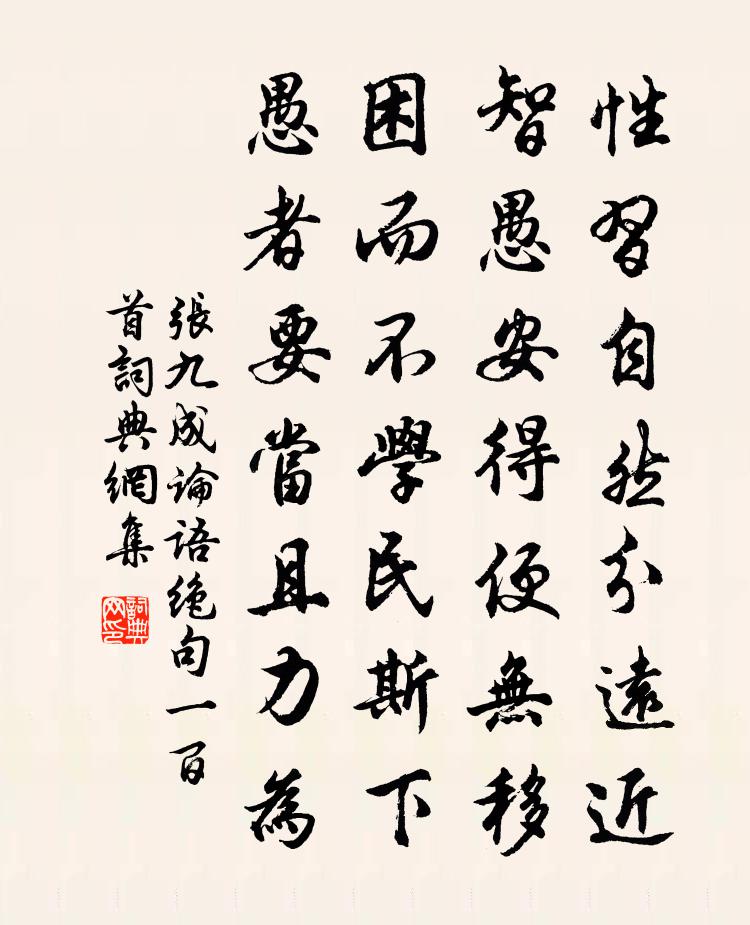 性習自然分遠近
智愚安得便無移
困而不學民斯下
愚者要當且力為
張九成論語绝句一百
首詞典網集
詞典网印